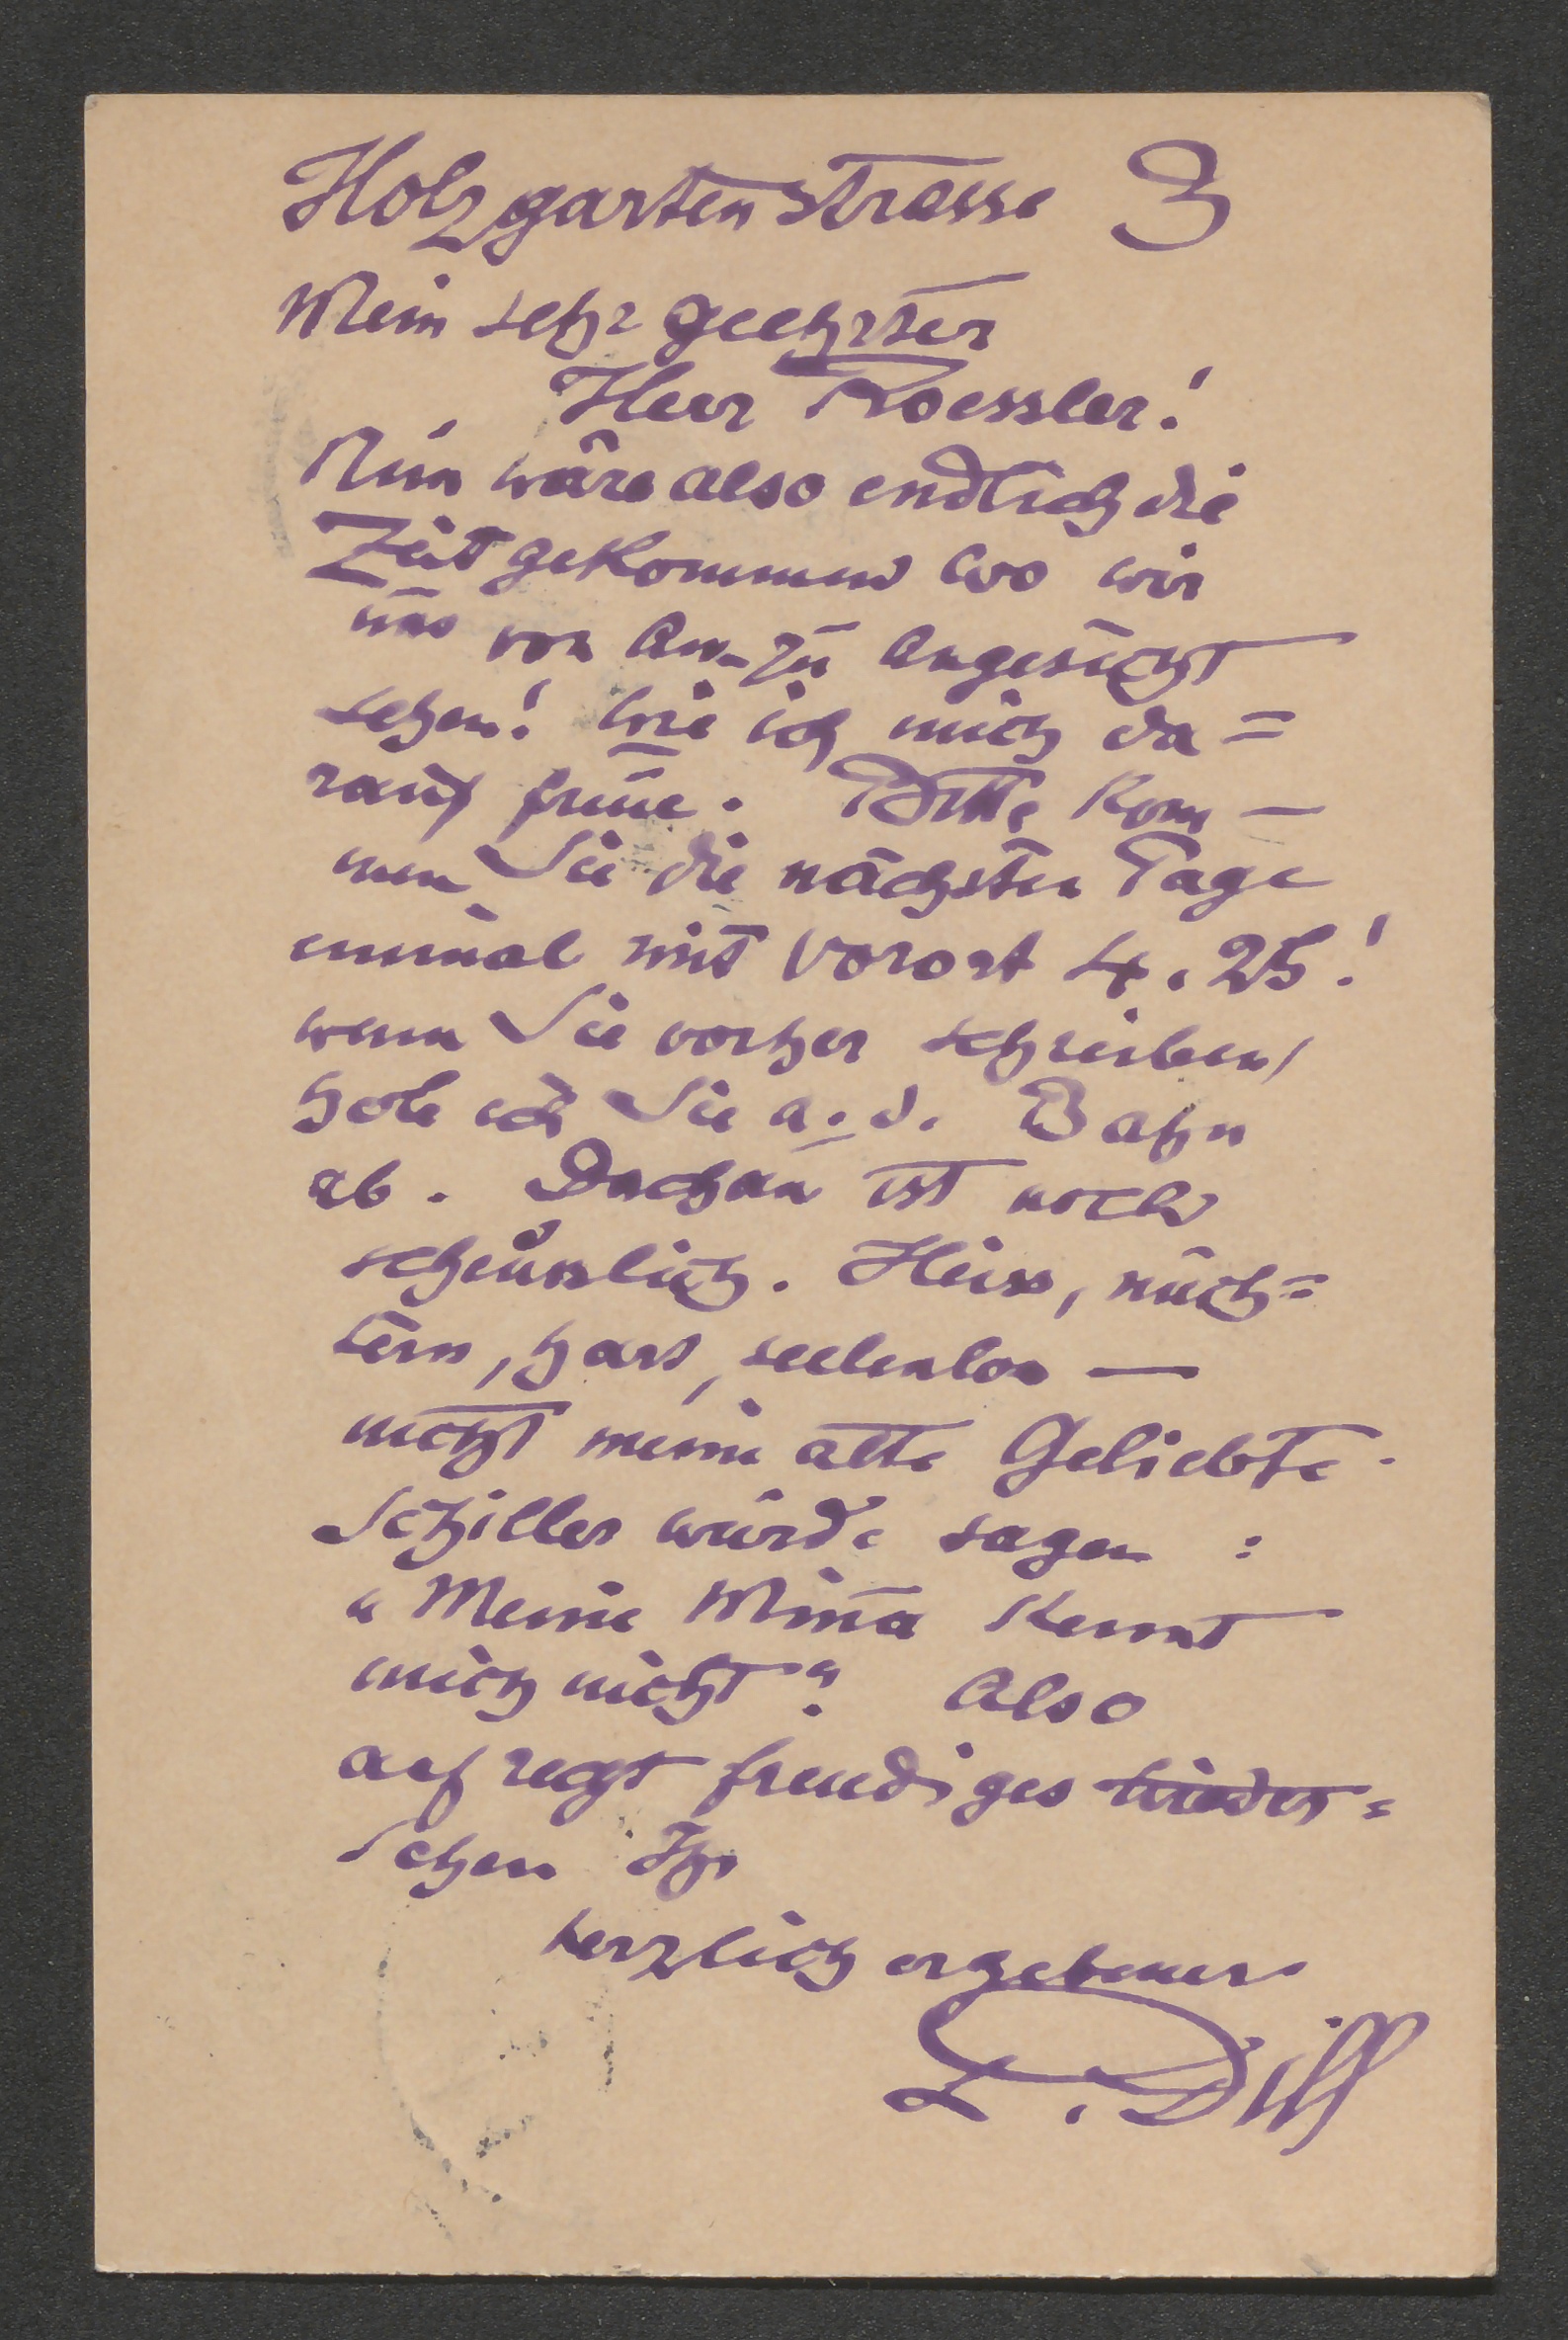 Holzgartenstrasse 3
Mein sehr geehrter
Herr Roessler!
Nun wäre also endlich die
Zeit gekommen wo wir
uns von An- zu Angesicht
sehen! Wie ich mich da=
rauf freue. Bitte kom-
men Sie die nächsten Tage
einmal mit Vorort 4.25!
wenn Sie vorher schreiben,
hole ich Sie a. d. Bahn
ab. Dachau ist noch
scheusslich. Heiss, nüch=
tern, hart, seelenlos —
nicht meine alte Geliebte.
Schiller würde sagen :
"Meine Minna kennt
mich nicht"! Also
auf recht freudiges Wieder=
sehen Ihr
herzlich ergebener
L. Dill